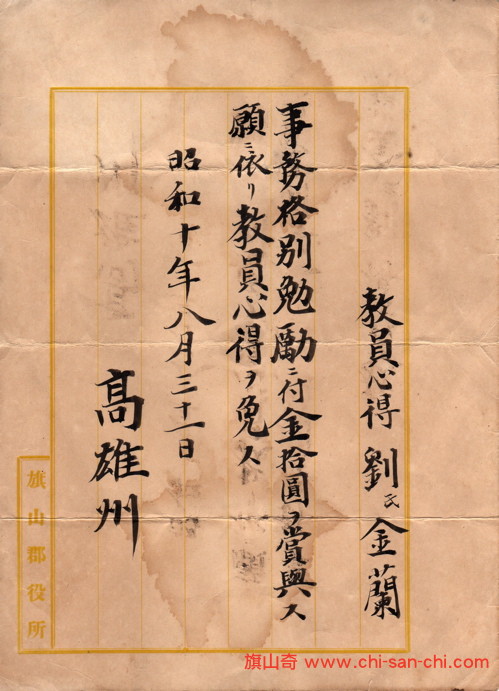 教員心得 劉氏金蘭
事務格別勉勵ニ付金拾圓ヲ賞與ス
願ニ依リ教員心得ヲ免ス
昭和十年八月三十一日
高雄州
旗山郡役所
旗山奇 www.chi-san-chi.com